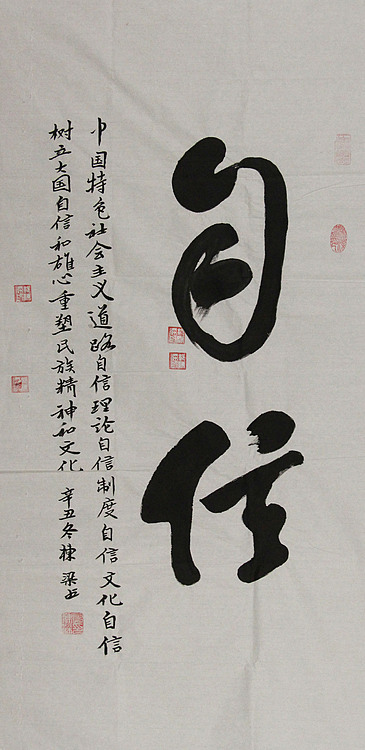 自信
中国特色社会主义道路自信理论自信制度自信文化自信
树立大国自信和雄心重塑民族精神和文化
辛丑冬栋梁书